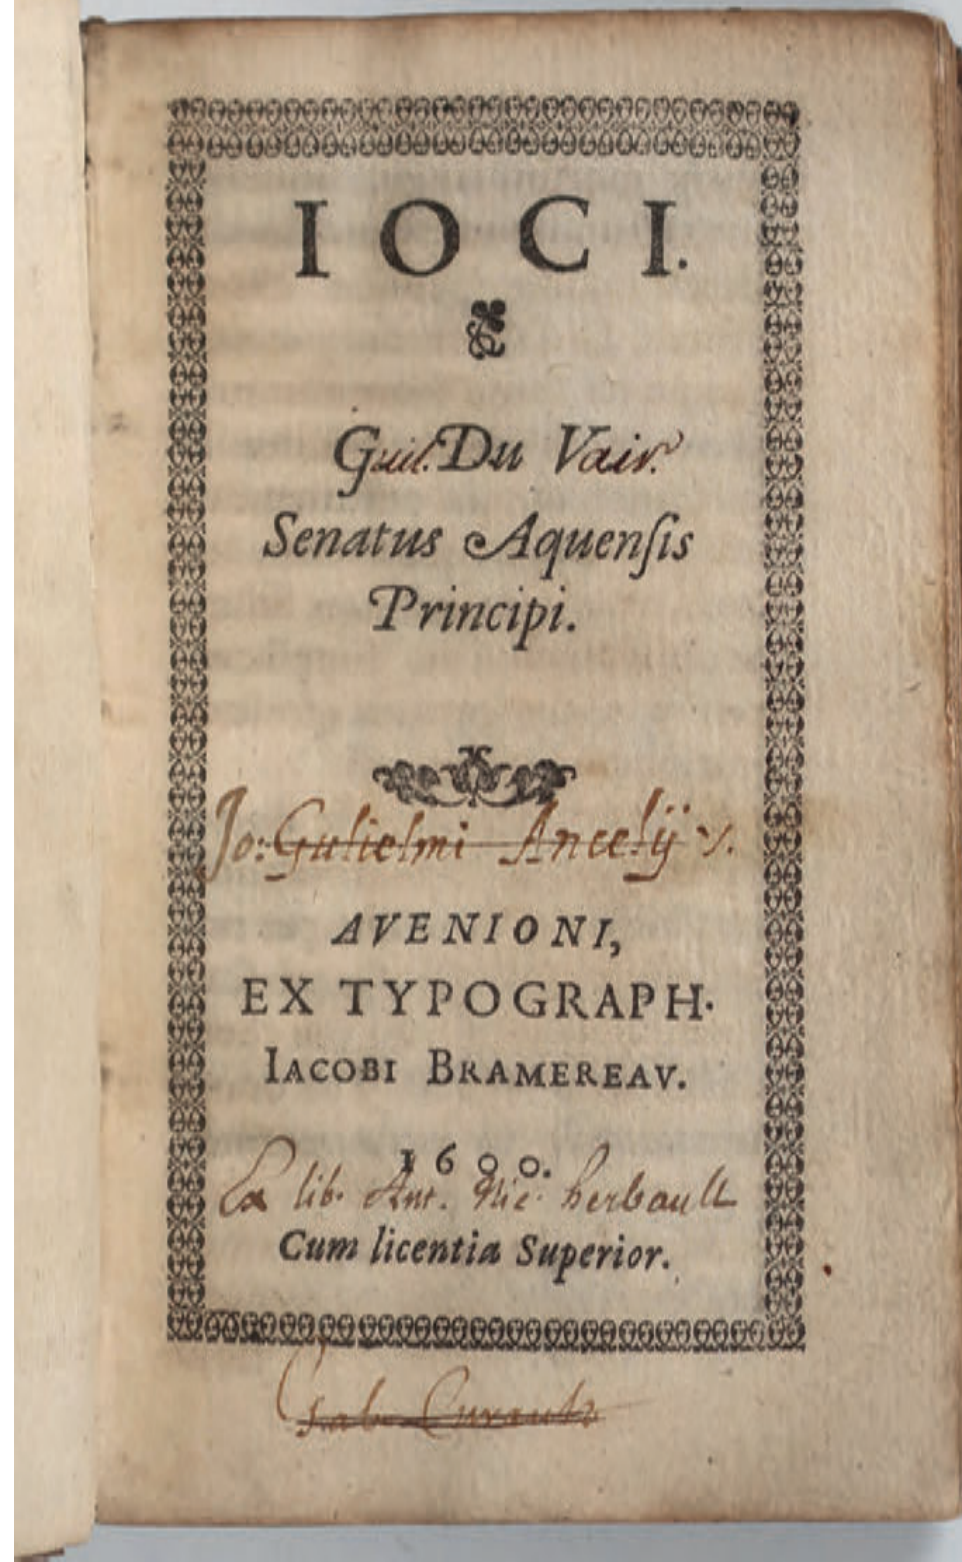 IOCI.
Guil. Du Vair.
Senatus Aquenſis
Principi.
Jo: Gulielmi Ancelij
AVENIONI,
EX TYPOGRAPH.
IACOBI BRAMEREAV.
1600.
Ex lib. Ant. Nic. herbault
Cum licentia Superior.